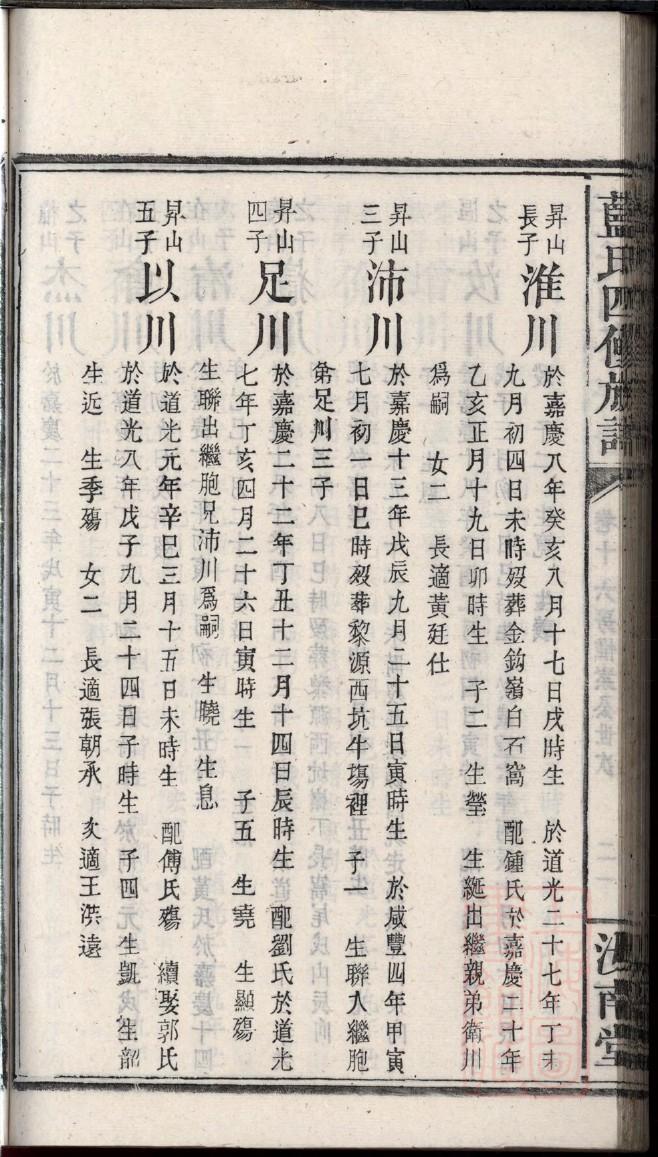 藍氏四修族譜
汝南堂
昇山長子 淮川
於嘉慶八年癸亥八月十七日戌時生 於道光二十七年丁未
九月初四日未時歿葬金鈎嶺白石窩 配鍾氏於嘉慶二十年
乙亥正月十九日卯時生 子二 生瑩 生綖出繼親弟衛川
為嗣 女二 長適黃廷仕
昇山三子 沛川
於嘉慶十三年戊辰九月二十五日寅時生 於咸豐四年甲寅
七月初一日巳時歿葬黎源西坑牛塲裡 子一 生聯入繼胞
弟足川三子
昇山四子 足川
於嘉慶二十二年丁丑十二月十四日辰時生 配劉氏於道光
七年丁亥四月二十六日寅時生 子五 生堯 生顯殤
生聯出繼胞兄沛川為嗣 生曉 生息
昇山五子 以川
於道光元年辛巳三月十五日未時生 配傅氏殤 續娶郭氏
於道光八年戊子九月二十四日子時生 子四 生凱 生韶
生远 生季殤 女二 長適張朝承 次適王洪遠